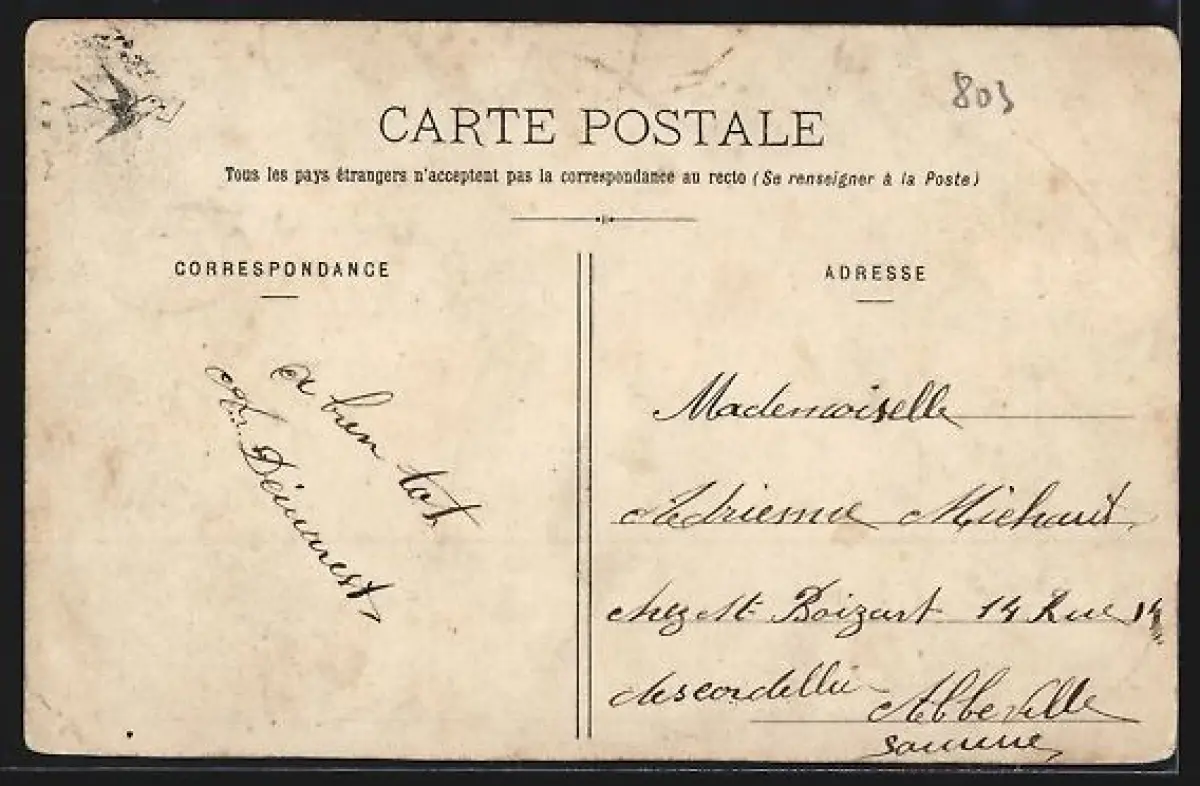 803
CARTE POSTALE
Tous les pays étrangers n'acceptent pas la correspondance au recto (Se renseigner à la Poste)
CORRESPONDANCE
a bien tot
Demarest
ADRESSE
Mademoiselle
Adrienne Michaut
chez Mr Boizart 14 Rue 14
descordellie Abbeville
somme